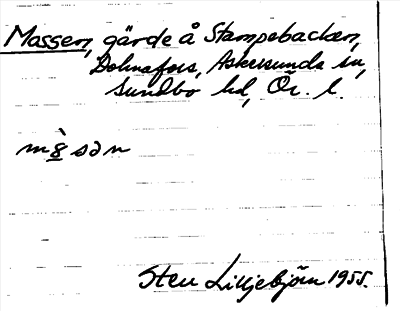 Massen, gärde å Stampebacken,
Dohnafors, Askersunds sn,
Sundbo hd, Ör. l.
m8̀sən
Sten Lilljebjörn 1955.